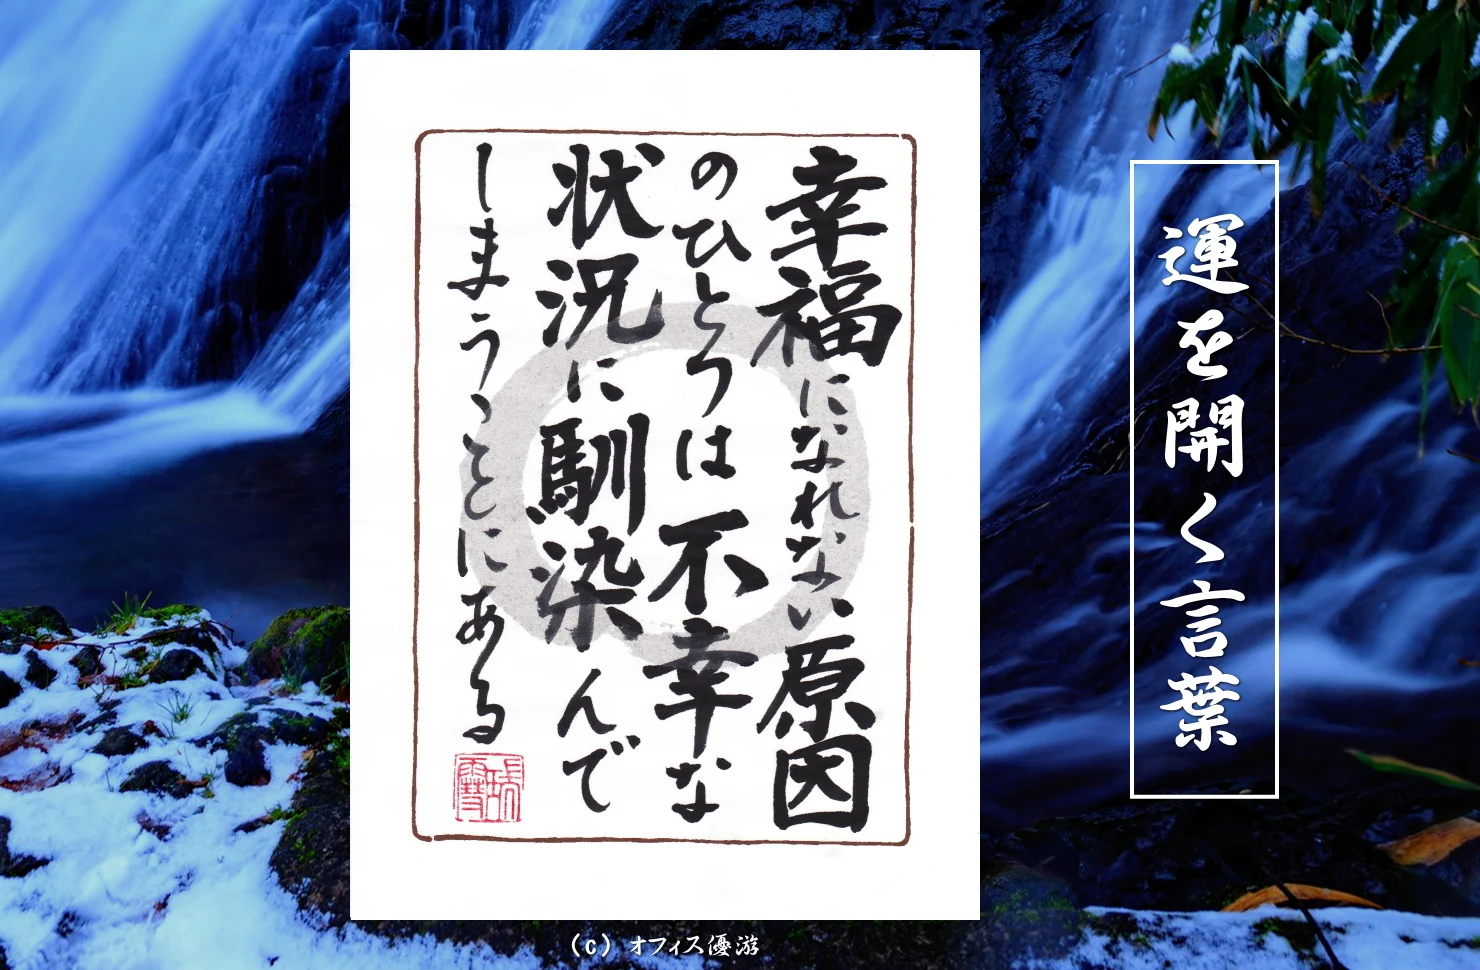 運を開く言葉
幸福になれない原因
のひとつは不幸な
状況に馴染んで
しまうことにある
(c) オフィス優游